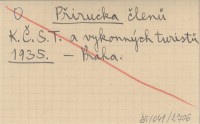 O Příručka členů
K.Č.S.T. a výkonných turistů
1935. – Praha.